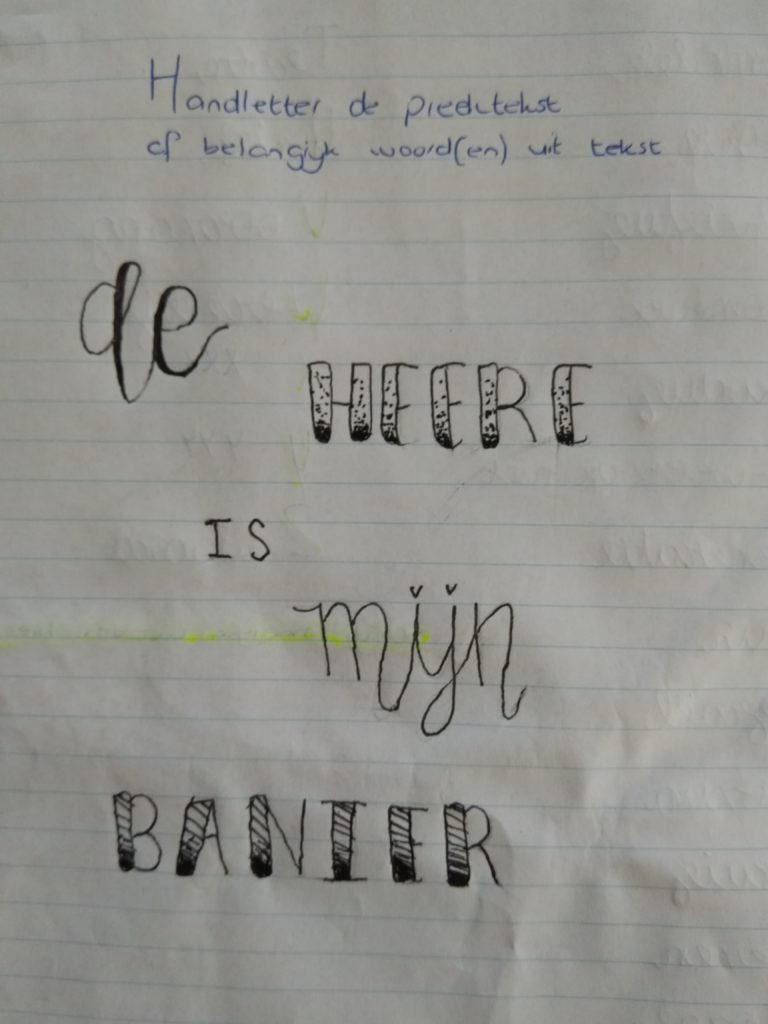 Handletter de preektekst
of belangijk woord(en) uit tekst
de
HEERE
IS
mijn
BANIER